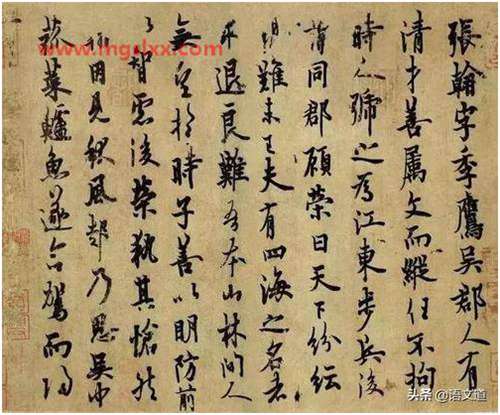 張翰字季鷹吳郡人有
清才善属文而縱任不拘
時人號之為江東步兵後
謂同郡顧榮曰天下紛紜
禍難未已夫有四海之名者
求退良難吾本山林間人
無望於時子善以明防前
以智慮後榮執其愴然
翰因見秋風起乃思吳中
菰菜鱸魚遂命駕而歸
头条 @语文道